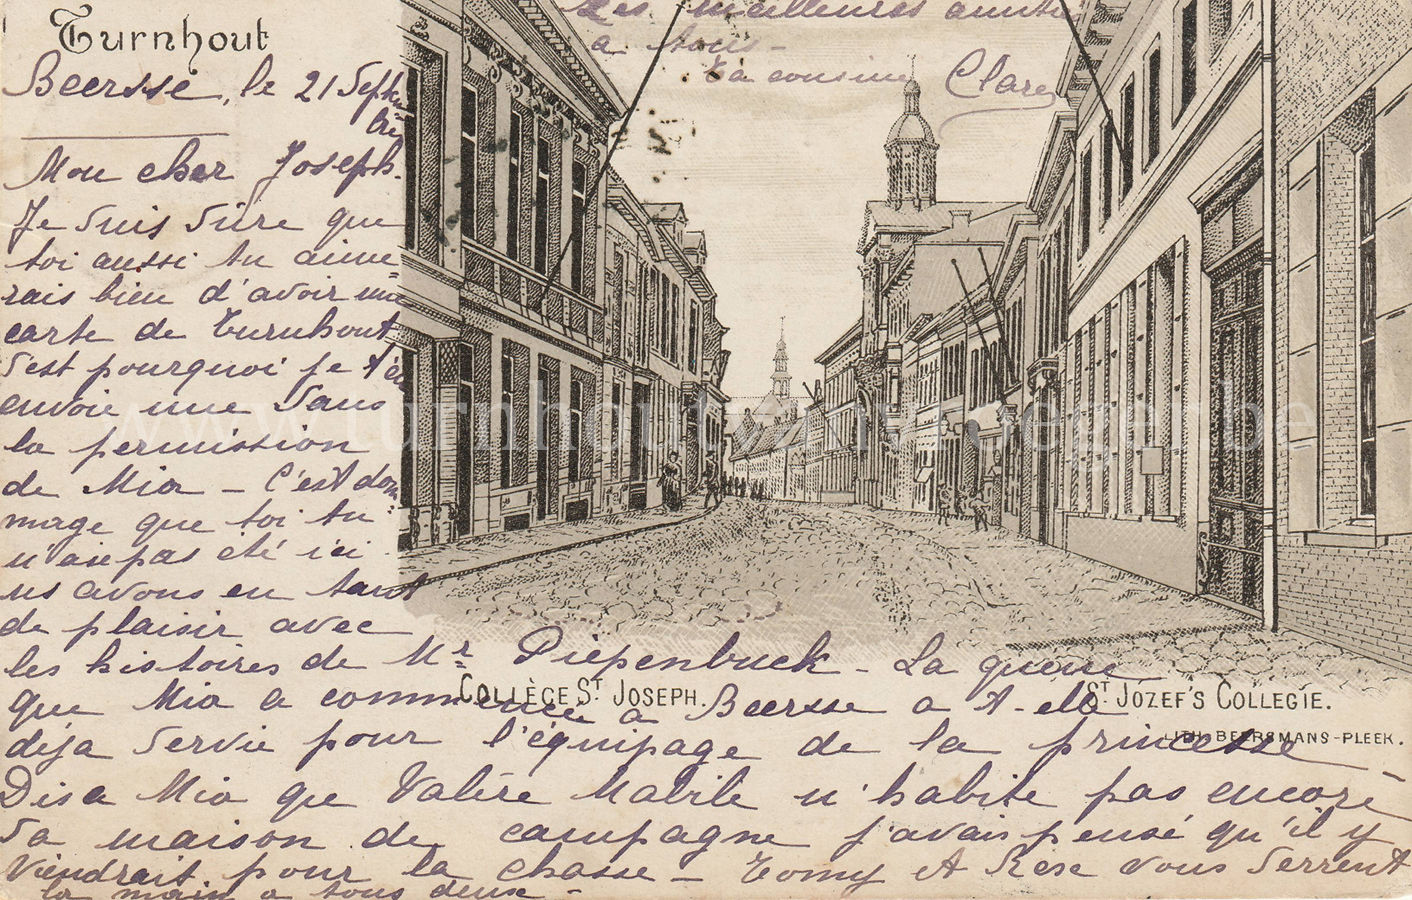 Turnhout
Beersse, le 21 Septem
bre
Mon cher Joseph.
Je suis sûre que
toi aussi tu aime-
rais bien d'avoir une
carte de Turnhout
s'est pourquoi je t'en
envoie une sans
la permission
de Mia - C'est dom
mage que toi tu
n'as pas été ici -
ns avons eu tant
de plaisir avec
les histoires de Mr Piepenbuck - La queue
que Mia a commencée à Beersse a t-elle
déja servie pour l'équipage de la princesse -
Dis a Mia que Valère Mabile n'habite pas encore
sa maison de campagne j'avais pensé qu'il y
viendrait pour la chasse - Tomy et Rese vous serrent
la main a tous deux -
Les meilleures amitiés
a tous -
Ta cousine Clare
COLLÈGE ST JOSEPH.
ST JOZEF'S COLLEGIE.
LITH. BEERSMANS-PLEEK.
www.turnhoutvanvroeger.be